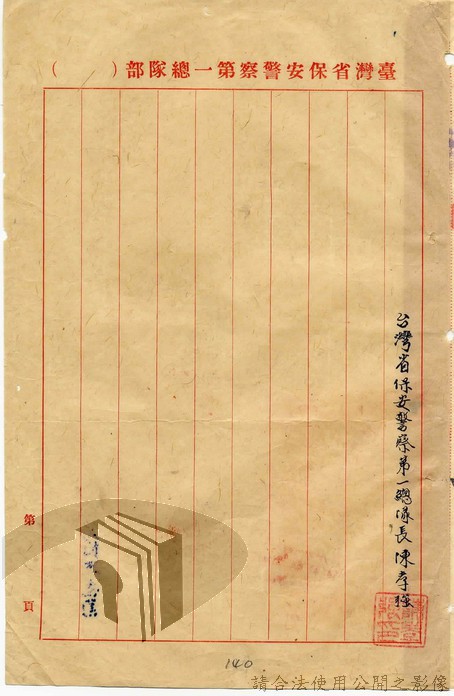 臺灣省保安警察第一總隊部（　　）
台灣省保安警察第一總隊長陳孝強
第　　頁
140
請合法使用公開之影像